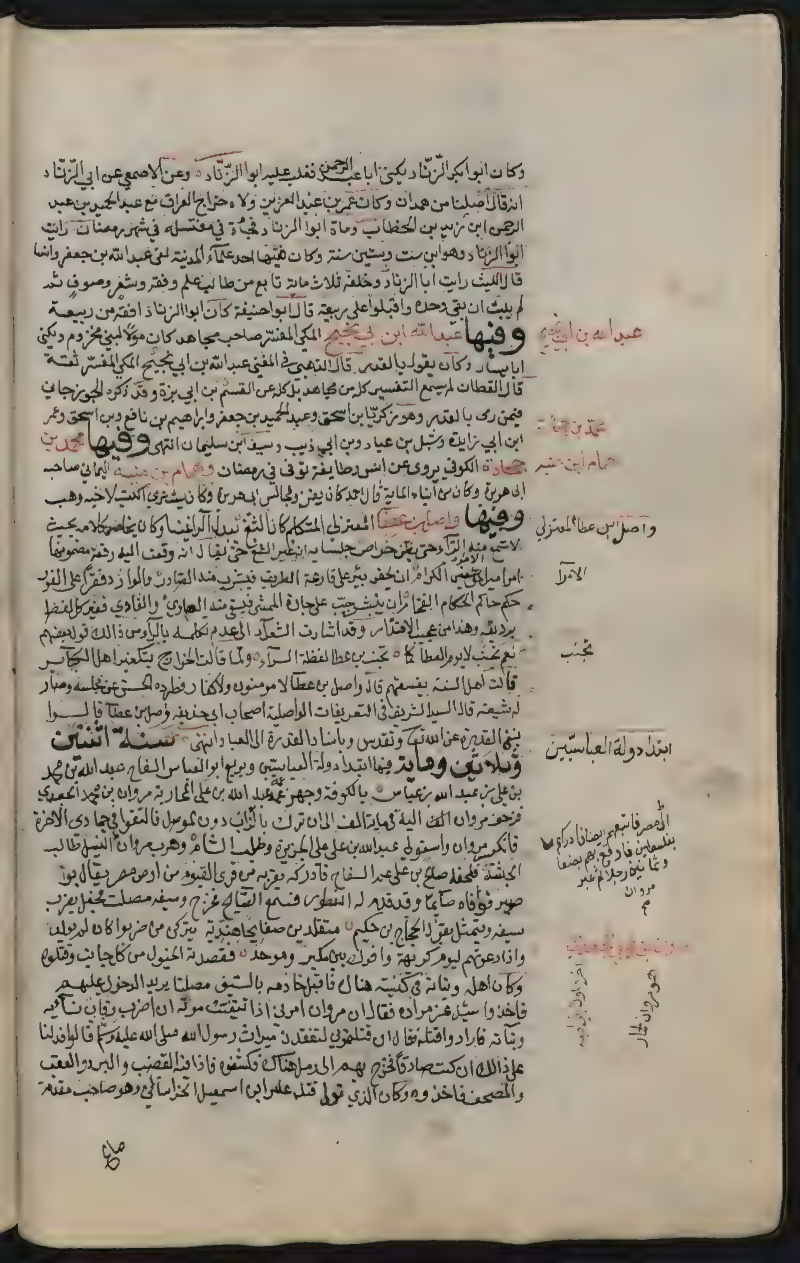 وكان ابو الزناد يكنى ابا عبد الرحمن فغلب عليه ابوا الزناد وعن الاصمعي عن ابي الزناد
انه قال اصلنا من همدان وكان عمر بن عبد العزيز ولاه خراج العراق مع عبد الحميد بن عبد
الرحمن ابن زيد بن الخطاب ومات ابوا الزناد فجاة في مغتسله في شهر رمضان رايت
ابوا الزناد وهو ابن ست وستين سنة وكان فقيها احد علماء المدينة لقي عبد الله بن جعفر وانسا
قال الليث رايت ابا الزناد وخلفه ثلاث مائة تابع من طالب علم وفقه وشعر وصوف ثم
لم يلبث ان بقي وحده واقبلوا على ربيعة قال ابو حنيفة كان ابوا الزناد افقه من ربيعة
وفيها عبد الله ابن ابي نجيح المكي المفسر صاحب مجاهد كان مولا لبني مخزوم ويكنى
ابا يسار وكان يقول بالقدر قال الذهبي في المغني عبد الله بن ابي نجيح المكي المفسر ثقة
قال القطان لم يسمع التفسير كله من مجاهد بل كله عن القسم بن ابي بزة وقد ذكره الجوزجاني
فيمن رمى بالقدر وهو زكريا بن اسحق وعبد الحميد بن جعفر وابراهيم بن نافع وبن اسحق وعمر
ابن ابي زايدة وشبل بن عباد وبن ابي ذيب وسيف ابن سليمان انتهى وفيها محمد بن
جحادة الكوفي يروي عن انس وطايفة توفى في رمضان وهمام بن منبه اليماني صاحب
ابى هريرة وكان من ابناء الماية قال احمد كان يغزو يجالس ابى هريرة وكان يشتري الكتب لاخيه وهب
وفيها واصل بن عطا المعتزلي المتكلم كان الثغ يبدل الراء غينا وكان يخلص كلامه بحيث
لا تسمع منه الراء حتى يظن خواص جلسايه انه غير الثغ حتى يقال انه وقعت اليه رقعة مضمونها
امر امير الكرام ان يحفر بئر على قارعة الطريق فيشرب منه الصادر والوارد فقرا على الفور
حكم حاكم الحكام الفخام ان ينبش جب على جادة الممشى فيسقى منه الصادي والغادي فغير كل لفظ
برديفه وهذا من عجيب الاقتدار وقد اشارت الشعراء الى عدم تكلمه بالراء من ذلك قول بعضهم
نعم تجنب لا يوم العطا كما تجنب بن عطا لفظة الراء ولما قالت الخوارج بتكفير اهل الكبائر
قالت اهل السنة بفسقهم قال واصل بن عطا لا مومنون ولا كفار فطرده الحسن عن مجلسه وصار
له شيعة قال السيد الشريف في التعريفات الواصلية اصحاب ابي حذيفة وصل بن عطا قالوا
بنفي القدرة عن الله تعالى وتقدس وباسناد القدرة الى العباد انتهى سنة اثنتين
وثلاثين وماية فيها ابتدا دولة العباسيين وبويع ابو العباس السفاح عبد الله بن محمد
بن علي بن عبد الله بن عباس بالكوفة وجهز عمه عبد الله بن علي لمحاربة مروان بن محمد الجعدي
فزحف مروان اليه في ماية الف الى ان نزل بالزاب دون الموصل فالتقوا في جمادى الاخرة
فانكسر مروان واستولى عبد الله بن علي على الجزيرة وطلب الشام وهرب مروان الى النيل طالب
الحبشة فلحقه صالح بن علي عم السفاح فادركه بقرية من قرى الفيوم من ارض مصر يقال بو
صير فوافاه صايما وقد قدم له الفطور فسمع الصايح فخرج وسيفه مصلت فجعل يضرب
بسيفه ويتمثل بقول الحجاج بن حكيم متقلدين صفايحا هندية يتركن من ضربوا كان لم يولد
واذا دعوتهم ليوم كريهة وافوك بين مكبر وموحد فقصدته الخيول من كل جانب وقتلوه
وكان اهله وبناته في كنيسة هناك فاقبل خادمه بالسيف مصلتا يريد الدخول عليهم
فاخذ وسئل عن مراده فقال ان مروان امرني اذا تيقنت موته ان اضرب رقاب نسائه
وبناته فارادوا قتله فقال ان قتلتموني لتفقدن ميراث رسول الله صلى الله عليه وسلم قالوا فدلنا
على ذلك ان كنت صادقا فخرج بهم الى رمل هناك فكشفوه فاذا فيه القضيب والبرد والقعب
والمصحف فاخذوه وكان الذي تولى قتله عامر ابن اسمعيل الخراساني وهو صاحب مقدمة
صالح
عبد الله بن ابي نجيح
محمد بن جحادة
همام ابن منبه
واصل ابن عطا المعتزلي
الامرا
تجنب
ابتدا دولة العباسيين
الى مصر فاتبعهم ايضا فادركهم
بفلسطين فاوقع بهم
وثمانين رجلا ثم عبر
مروان
هو مروان الحمار